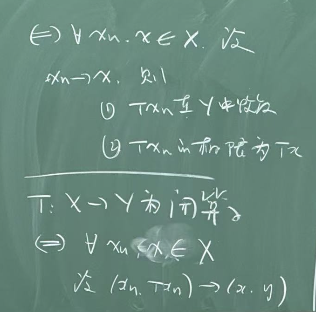 ⟺ ∀ xn, x ∈ X. 设
xn→x, 则
① Txn在Y中收敛
② Txn的极限为Tx
T: X→Y为闭算子
⟺ ∀ xn, x ∈ X
设 (xn, Txn)→(x, y)